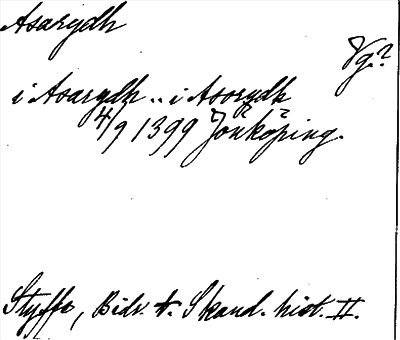 Asarydh
Vg.?
i Asarydh .. i Asorydh
4/9 1399 Jönköping.
Styffe, Bidr. t. Skand. hist. II.